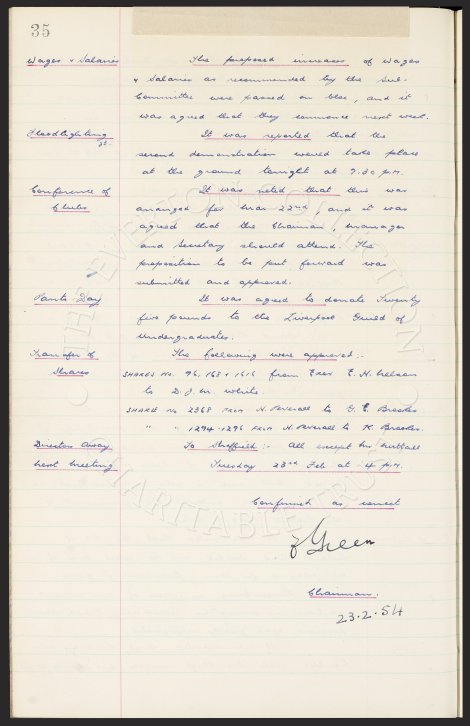 35
Wages & Salaries The proposed increases of wages
& Salaries as recommended by the Sub-
Committee were passed en bloc, and it
was agreed that they commence next week.
Floodlighting It was reported that the
second demonstration would take place
at the ground tonight at 7.30 p.m.
Conference of It was noted that this was
Clubs arranged for Mar 22nd, and it was
agreed that the Chairman, Manager
and Secretary should attend. The
proposition to be put forward was
submitted and approved.
Panto Day It was agreed to donate Twenty
five pounds to the Liverpool Guild of
Undergraduates.
Transfer of The following were approved :-
Shares SHARES No. 96, 168 & 1616 from Exor E. H.
to D. J. W. White.
SHARE No 2368 FROM H. to G. E. Brookes
" " 1294-1296 FROM H. to K. Brookes.
Directors Away To Sheffield :- All except Mr Nuttall
Next Meeting Tuesday 23rd Feb at 4 P.M.
Confirmed as correct
Green
Chairman.
23.2.54
THE EVERTON COLLECTION
CHARITABLE TRUST